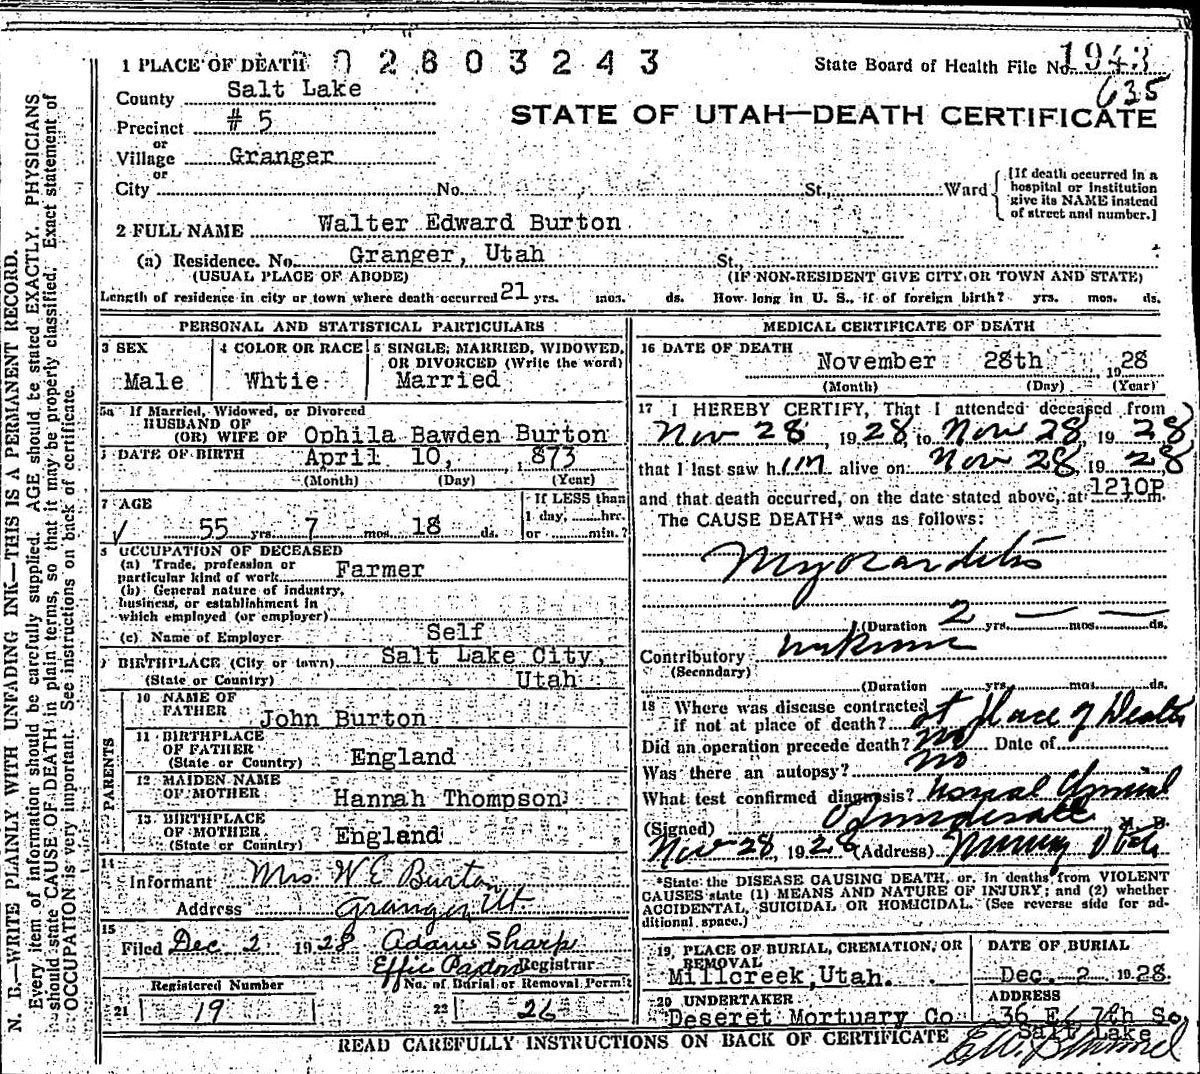 1 PLACE OF DEATH 0 2 8 0 3 2 4 3 State Board of Health File No. 1943
635
County Salt Lake
STATE OF UTAH—DEATH CERTIFICATE
Precinct # 5
or
Village Granger
or
City No. St. Ward
[If death occurred in a
hospital or institution
give its NAME instead
of street and number.]
2 FULL NAME Walter Edward Burton
(a) Residence. No. Granger, Utah St.
(USUAL PLACE OF ABODE) (IF NON-RESIDENT GIVE CITY OR TOWN AND STATE)
Length of residence in city or town where death occurred 21 yrs. mos. ds. How long in U. S., if of foreign birth? yrs. mos. ds.
PERSONAL AND STATISTICAL PARTICULARS
3 SEX
Male
4 COLOR OR RACE
Whtie
5 SINGLE, MARRIED, WIDOWED,
OR DIVORCED (Write the word)
Married
5a If Married, Widowed, or Divorced
HUSBAND OF
(OR) WIFE OF Ophila Bawden Burton
DATE OF BIRTH April 10, 1873
(Month) (Day) (Year)
7 AGE
55 yrs. 7 mos. 18 ds.
If LESS than
1 day, hrs.
or min.?
8 OCCUPATION OF DECEASED
(a) Trade, profession or
particular kind of work Farmer
(b) General nature of industry,
business, or establishment in
which employed (or employer)
(c) Name of Employer Self
9 BIRTHPLACE (City or town) Salt Lake City,
(State or Country) Utah
PARENTS
10 NAME OF
FATHER John Burton
11 BIRTHPLACE
OF FATHER
(State or Country) England
12 MAIDEN NAME
OF MOTHER Hannah Thompson
13 BIRTHPLACE
OF MOTHER
(State or Country) England
14
Informant Mrs W E Burton
Address Granger Ut
15
Filed Dec 2 1928 Adam Sharp
Effie Registrar
Registered Number No. of Burial or Removal Permit
21 19 22 26
MEDICAL CERTIFICATE OF DEATH
16 DATE OF DEATH
November 28th 1928
(Month) (Day) (Year)
17 I HEREBY CERTIFY, That I attended deceased from
Nov 28, 1928 to Nov 28, 1928
that I last saw him alive on Nov 28, 1928,
and that death occurred, on the date stated above, at 1210P m.
The CAUSE DEATH* was as follows:
Myocarditis
(Duration 2 yrs. — mos. — ds.
Contributory unknown
(Secondary)
(Duration yrs. mos. ds.
18 Where was disease contracted
if not at place of death? at place of Death
Did an operation precede death? no Date of
Was there an autopsy? no
What test confirmed diagnosis? usual
(Signed) M. D.
Nov 28, 1928 (Address) Murray Utah
*State the DISEASE CAUSING DEATH, or, in deaths from VIOLENT
CAUSES state (1) MEANS AND NATURE OF INJURY; and (2) whether
ACCIDENTAL, SUICIDAL OR HOMICIDAL. (See reverse side for ad-
ditional space.)
19 PLACE OF BURIAL, CREMATION, OR
REMOVAL
Millcreek, Utah.
DATE OF BURIAL
Dec. 2 1928.
20 UNDERTAKER
Deseret Mortuary Co
ADDRESS
36 E. 7th So.
Salt Lake
READ CAREFULLY INSTRUCTIONS ON BACK OF CERTIFICATE
N. B.—WRITE PLAINLY WITH UNFADING INK—THIS IS A PERMANENT RECORD.
Every item of information should be carefully supplied. AGE should be stated EXACTLY. PHYSICIANS
should state CAUSE OF DEATH in plain terms, so that it may be properly classified. Exact statement of
OCCUPATION is very important. See instructions on back of certificate.